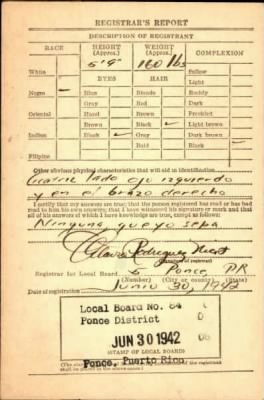 REGISTRAR'S REPORT
DESCRIPTION OF REGISTRANT
RACE HEIGHT (Approx.) WEIGHT (Approx.) COMPLEXION
5'9" 160 lbs
White Sallow
EYES HAIR Light
Negro Blue Blonde Ruddy
Gray Red Dark
Oriental Hazel Brown Freckled
Brown Black Light brown
Indian Black Gray Dark brown
Bald Black
Filipino
Other obvious physical characteristics that will aid in identification
Cicatriz lado ojo izquierdo
y en el brazo derecho
I certify that my answers are true; that the person registered has read or has had
read to him his own answers; that I have witnessed his signature or mark and that
all of his answers of which I have knowledge are true, except as follows:
Ninguna que yo sepa
Rodriguez
Registrar for Local Board 6 Ponce, PR
(Number) (City or county) (State)
Date of registration Junio 30, 1942
Local Board No. 64
Ponce District
JUN 30 1942
(STAMP OF LOCAL BOARD)
Ponce, Puerto Rico